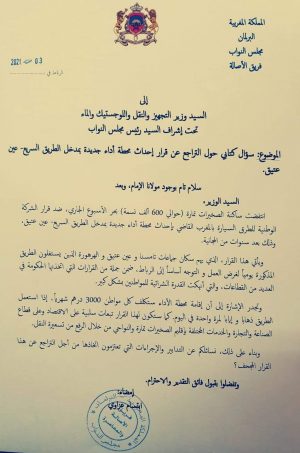 المملكة المغربية
البرلمان
مجلس النواب
فريق الأصالة
03 2021
إلى
السيد وزير التجهيز والنقل واللوجستيك والماء
تحت إشراف السيد رئيس مجلس النواب
الموضوع: سؤال كتابي حول التراجع عن قرار إحداث محطة أداء جديدة بمدخل الطريق السريع- عين
عتيق.
سلام تام بوجود مولانا الإمام، وبعد
السيد الوزير،
انتفضت ساكنة الصخيرات تمارة (حوالي 600 ألف نسمة) بحر الأسبوع الجاري، ضد قرار الشركة
الوطنية للطرق السيارة بالمغرب القاضي بإحداث محطة أداء جديدة بمدخل الطريق السريع- عين عتيق.
وذلك بعد سنوات من المجانية.
ويأتي هذا القرار، الذي يهم سكان جماعات تامسنا و عين عتيق و الهرهورة الذين يستغلون الطريق
المذكورة يوميا لغرض العمل و التوجه أساسا إلى الرباط، ضمن جملة من القرارات التي تتخذها الحكومة في
العديد من القطاعات، والتي أنهكت القدرة الشرائية للمواطنين بشكل كبير.
وتجدر الإشارة إلى أن إقامة محطة الأداء ستكلف كل مواطن 3000 درهم شهريا، إذا استعمل
الطريق ذهابا و إيابا لمرة واحدة في اليوم كما ستكون لهذا القرار تبعات سلبية على الاقتصاد وعلى قطاع
الصناعة والتجارة والخدمات المختلفة بإقليم الصخيرات تمارة والنواحي من خلال الرفع من تسعيرة النقل.
وبناء على ذلك، نسائلكم عن التدابير والإجراءات التي تعتزمون اتخاذها من أجل التراجع عن هذا
القرار المجحف؟
وتفضلوا بقبول فائق التقدير والاحترام.
إمضاء:
ابتسام عزاوي